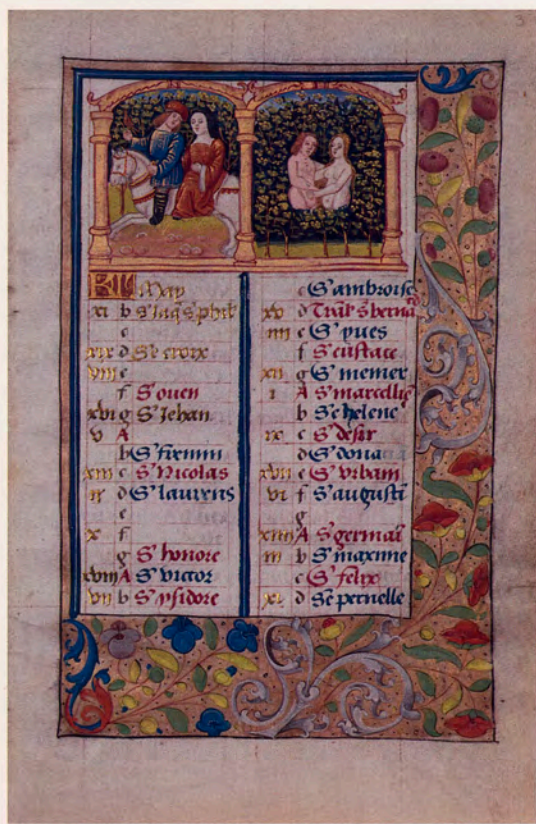 3
KL May
xi b S' Jaq̃ S' phil'
c
xix d Sẽ croix
viii e
f S' ouen
xvi g S' Jehan
v A
b S' firmin
xiii c S' Nicolas
ii d S' laurens
e
x f
g S' honore
xviii A S' victor
vii b S' ysidore
c S' ambroise
xv d
iiii e S' yues
f S' eustace
xii g S' memer
i A
b Sẽ helene
ix c S' desir
d S' dona
xvii e S' vrbain
vi f S' augusti
g
xiiii A S' germaĩ
iii b S' maxime
c S' felix
xi d Sẽ pernelle